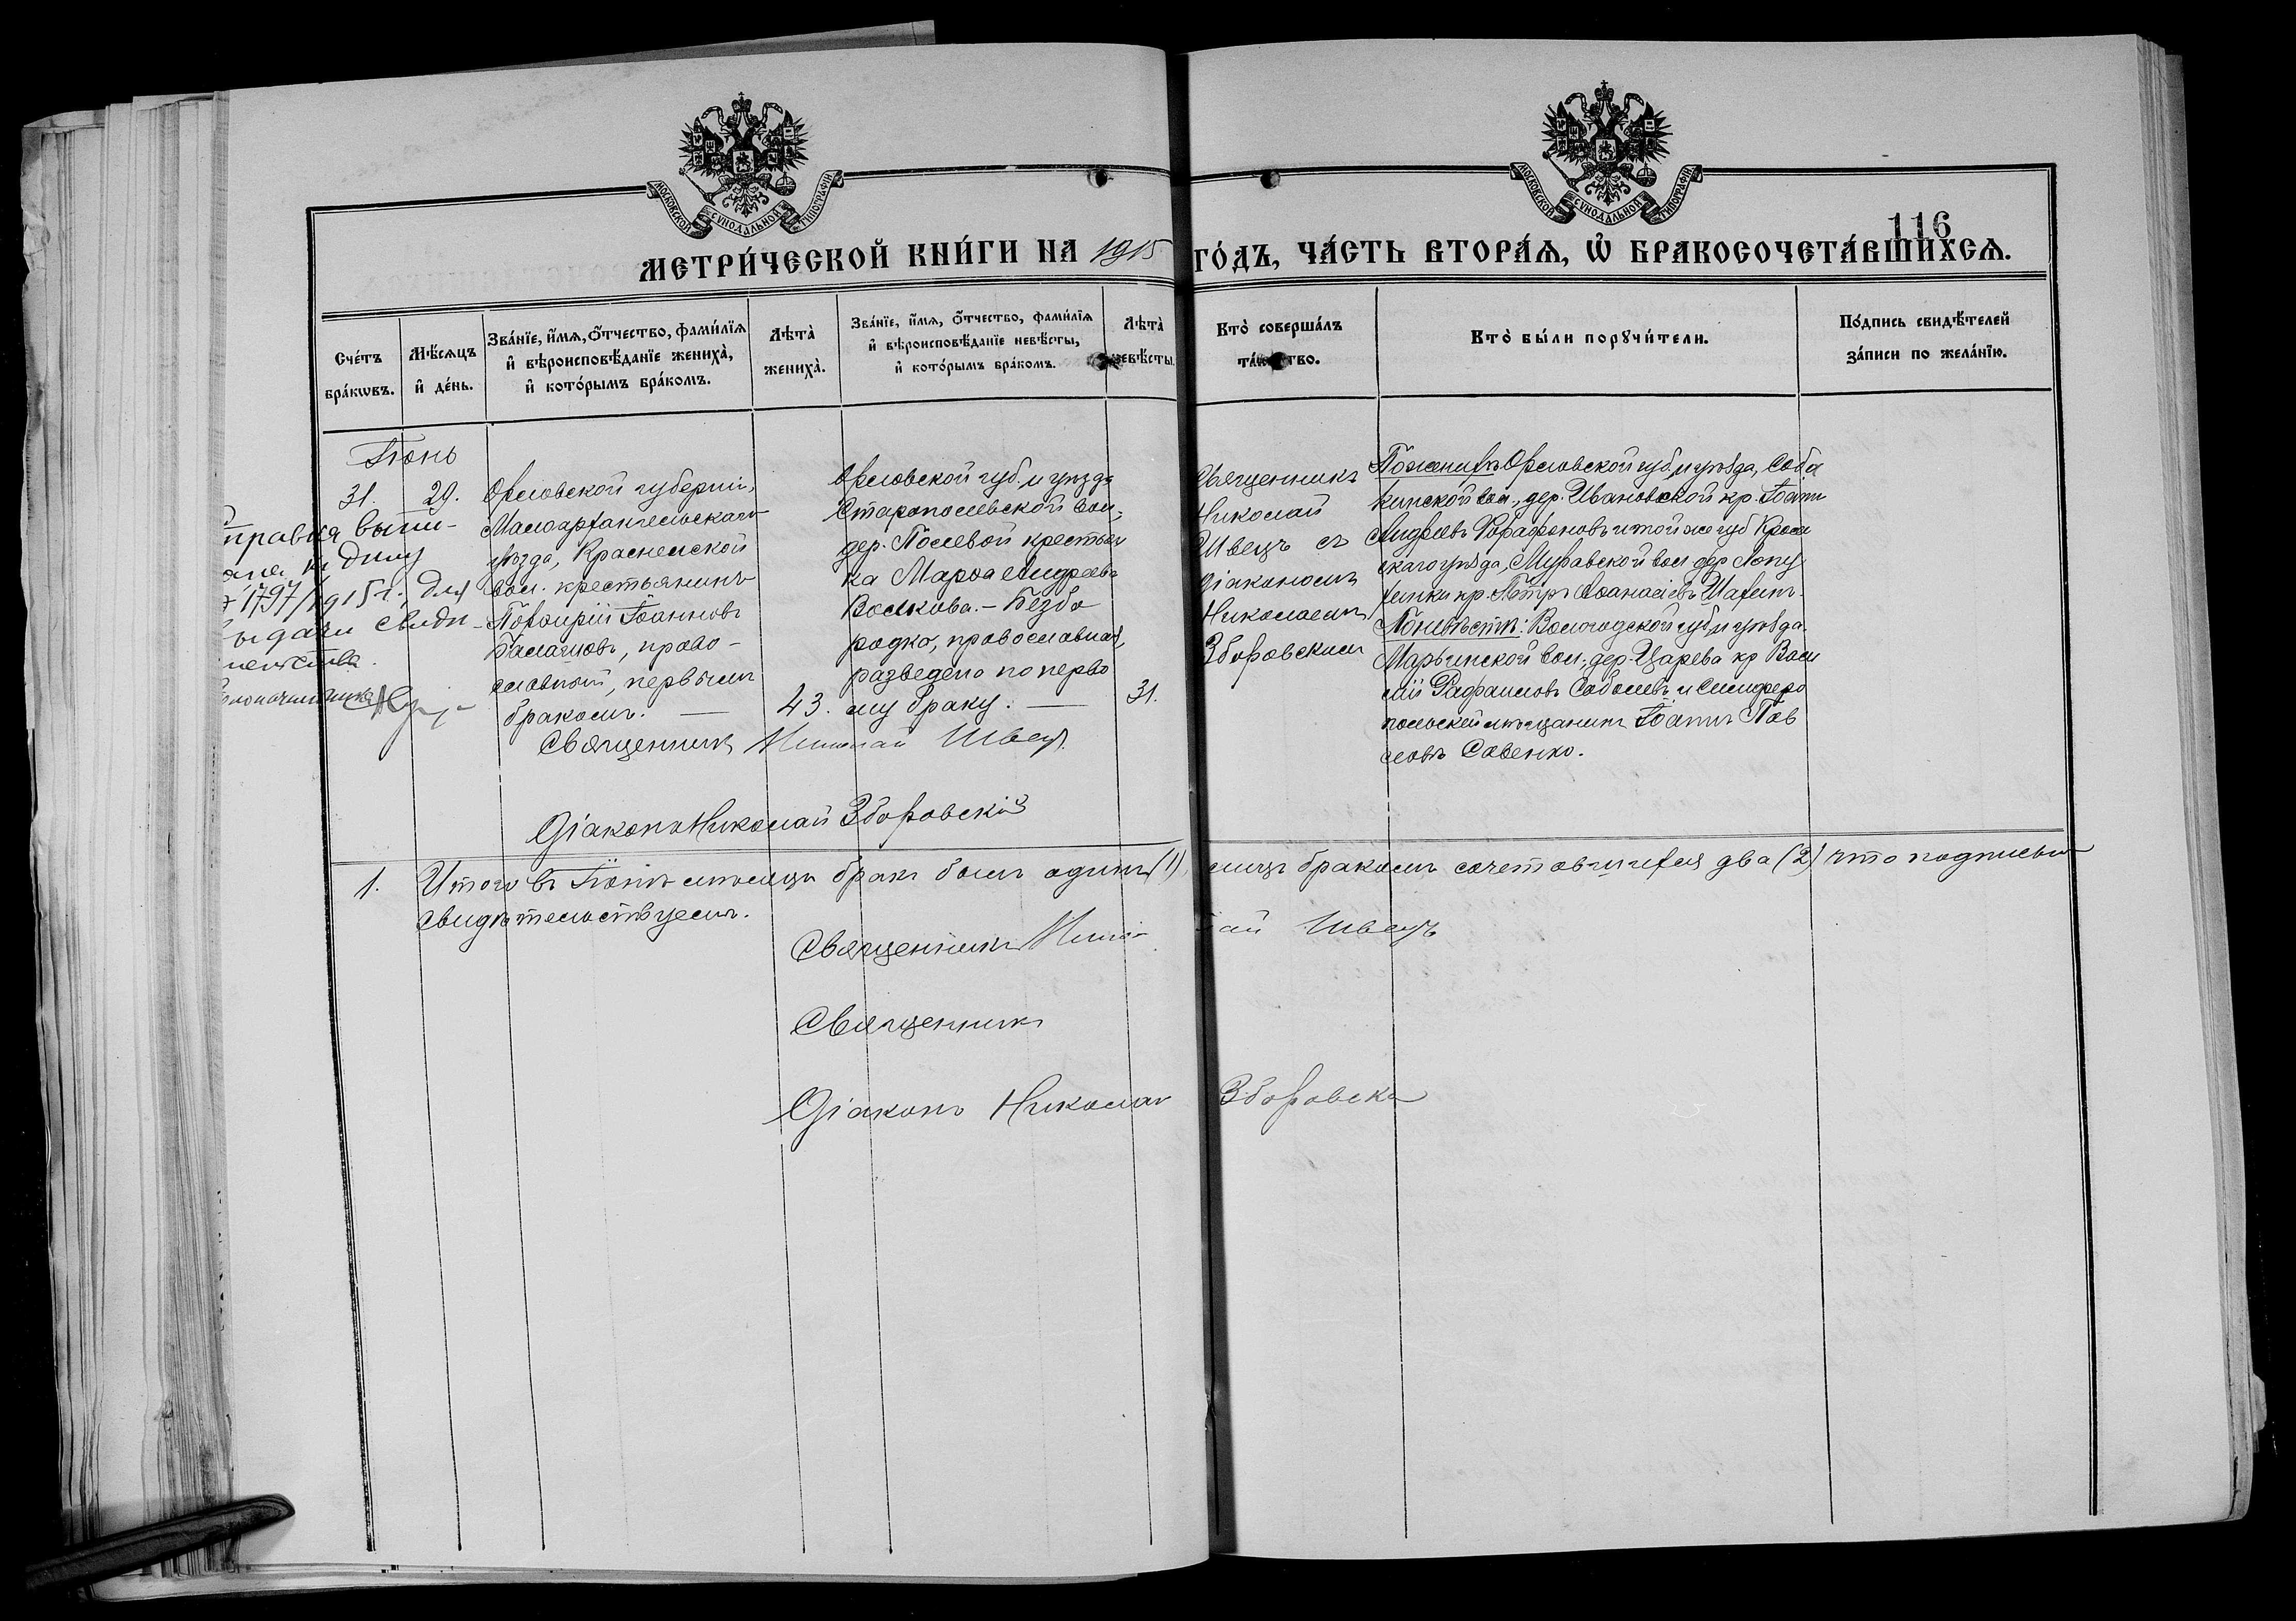 МОСКОВСКОЙ СѴНОДАЛЬНОЙ ТИПОГРАФІИ
МОСКОВСКОЙ СѴНОДАЛЬНОЙ ТИПОГРАФІИ
116
МЕТРИ́ЧЕСКОЙ КНИ́ГИ НА 1915 ГО́ДЪ, ЧА́СТЬ ВТОРА́Я, Ѡ҆ БРАКОСОЧЕТА́ВШИХСЯ.
Сче́тъ бра́кѡвъ.
Мѣ́сяцъ и҆ де́нь.
Зва́нїе, и҆́мя, ѻ҆́тчество, фами́лїя и҆ вѣроисповѣ́данїе жениха̀, и҆ кото́рымъ бра́комъ.
Лѣта̀ жениха̀.
Зва́нїе, и҆́мя, ѻ҆́тчество, фами́лїя и҆ вѣроисповѣ́данїе невѣ́сты, и҆ кото́рымъ бра́комъ.
Лѣта̀ невѣ́сты.
Кто̀ соверша́лъ та́инство.
Кто̀ бы́ли порꙋчи́тели.
По́дпись свидѣ́телей за́писи по жела́нїю.
Іюнь
31.
29.
Орловской губерніи,
Малоархангельскаго
уѣзда, Красненской
вол. крестьянинъ
Порфирій Іоанновъ
Балашовъ, право-
славный, первымъ
бракомъ. —
43.
Орловской губ. и уѣзда
Старопольевской вол.,
дер. Полевой крестьян
ка Марѳа Андреева
Волкова. – Безбо
родко, православная,
разведена по перво
му браку. —
31.
Священникъ
Николай
Швецъ съ
діакономъ
Николаемъ
Зборовскимъ
По женихѣ Орловской губ. и уѣзда, Соба
кинской вол., дер. Ивановской кр. Іоаннъ
Андреевъ и той же губ Кром
скаго уѣзда, Муравской вол дер Лопу
хинки кр. Петръ Аѳанасіевъ Шахинъ.
По невѣстѣ: Вологодской губ. и уѣзда.
Марьинской вол., дер. Царева кр Васи
лій Рафаиловъ Соболевъ и Симферо
польскій мѣщанинъ Іоаннъ Пав
ловъ Савенко.
правка выпи-
дѣлу
1797/1915 г. для
выдачи свидѣ-
тельства.
Священникъ Николай Швецъ.
Діаконъ Николай Зборовскій
1. Итого въ Іюнѣ мѣсяцѣ бракъ былъ одинъ (1), лицъ бракомъ сочетавшихся два (2) что подписью
свидѣтельствуемъ.
Священникъ Николай Швецъ
Священникъ
Діаконъ Николай Зборовскій